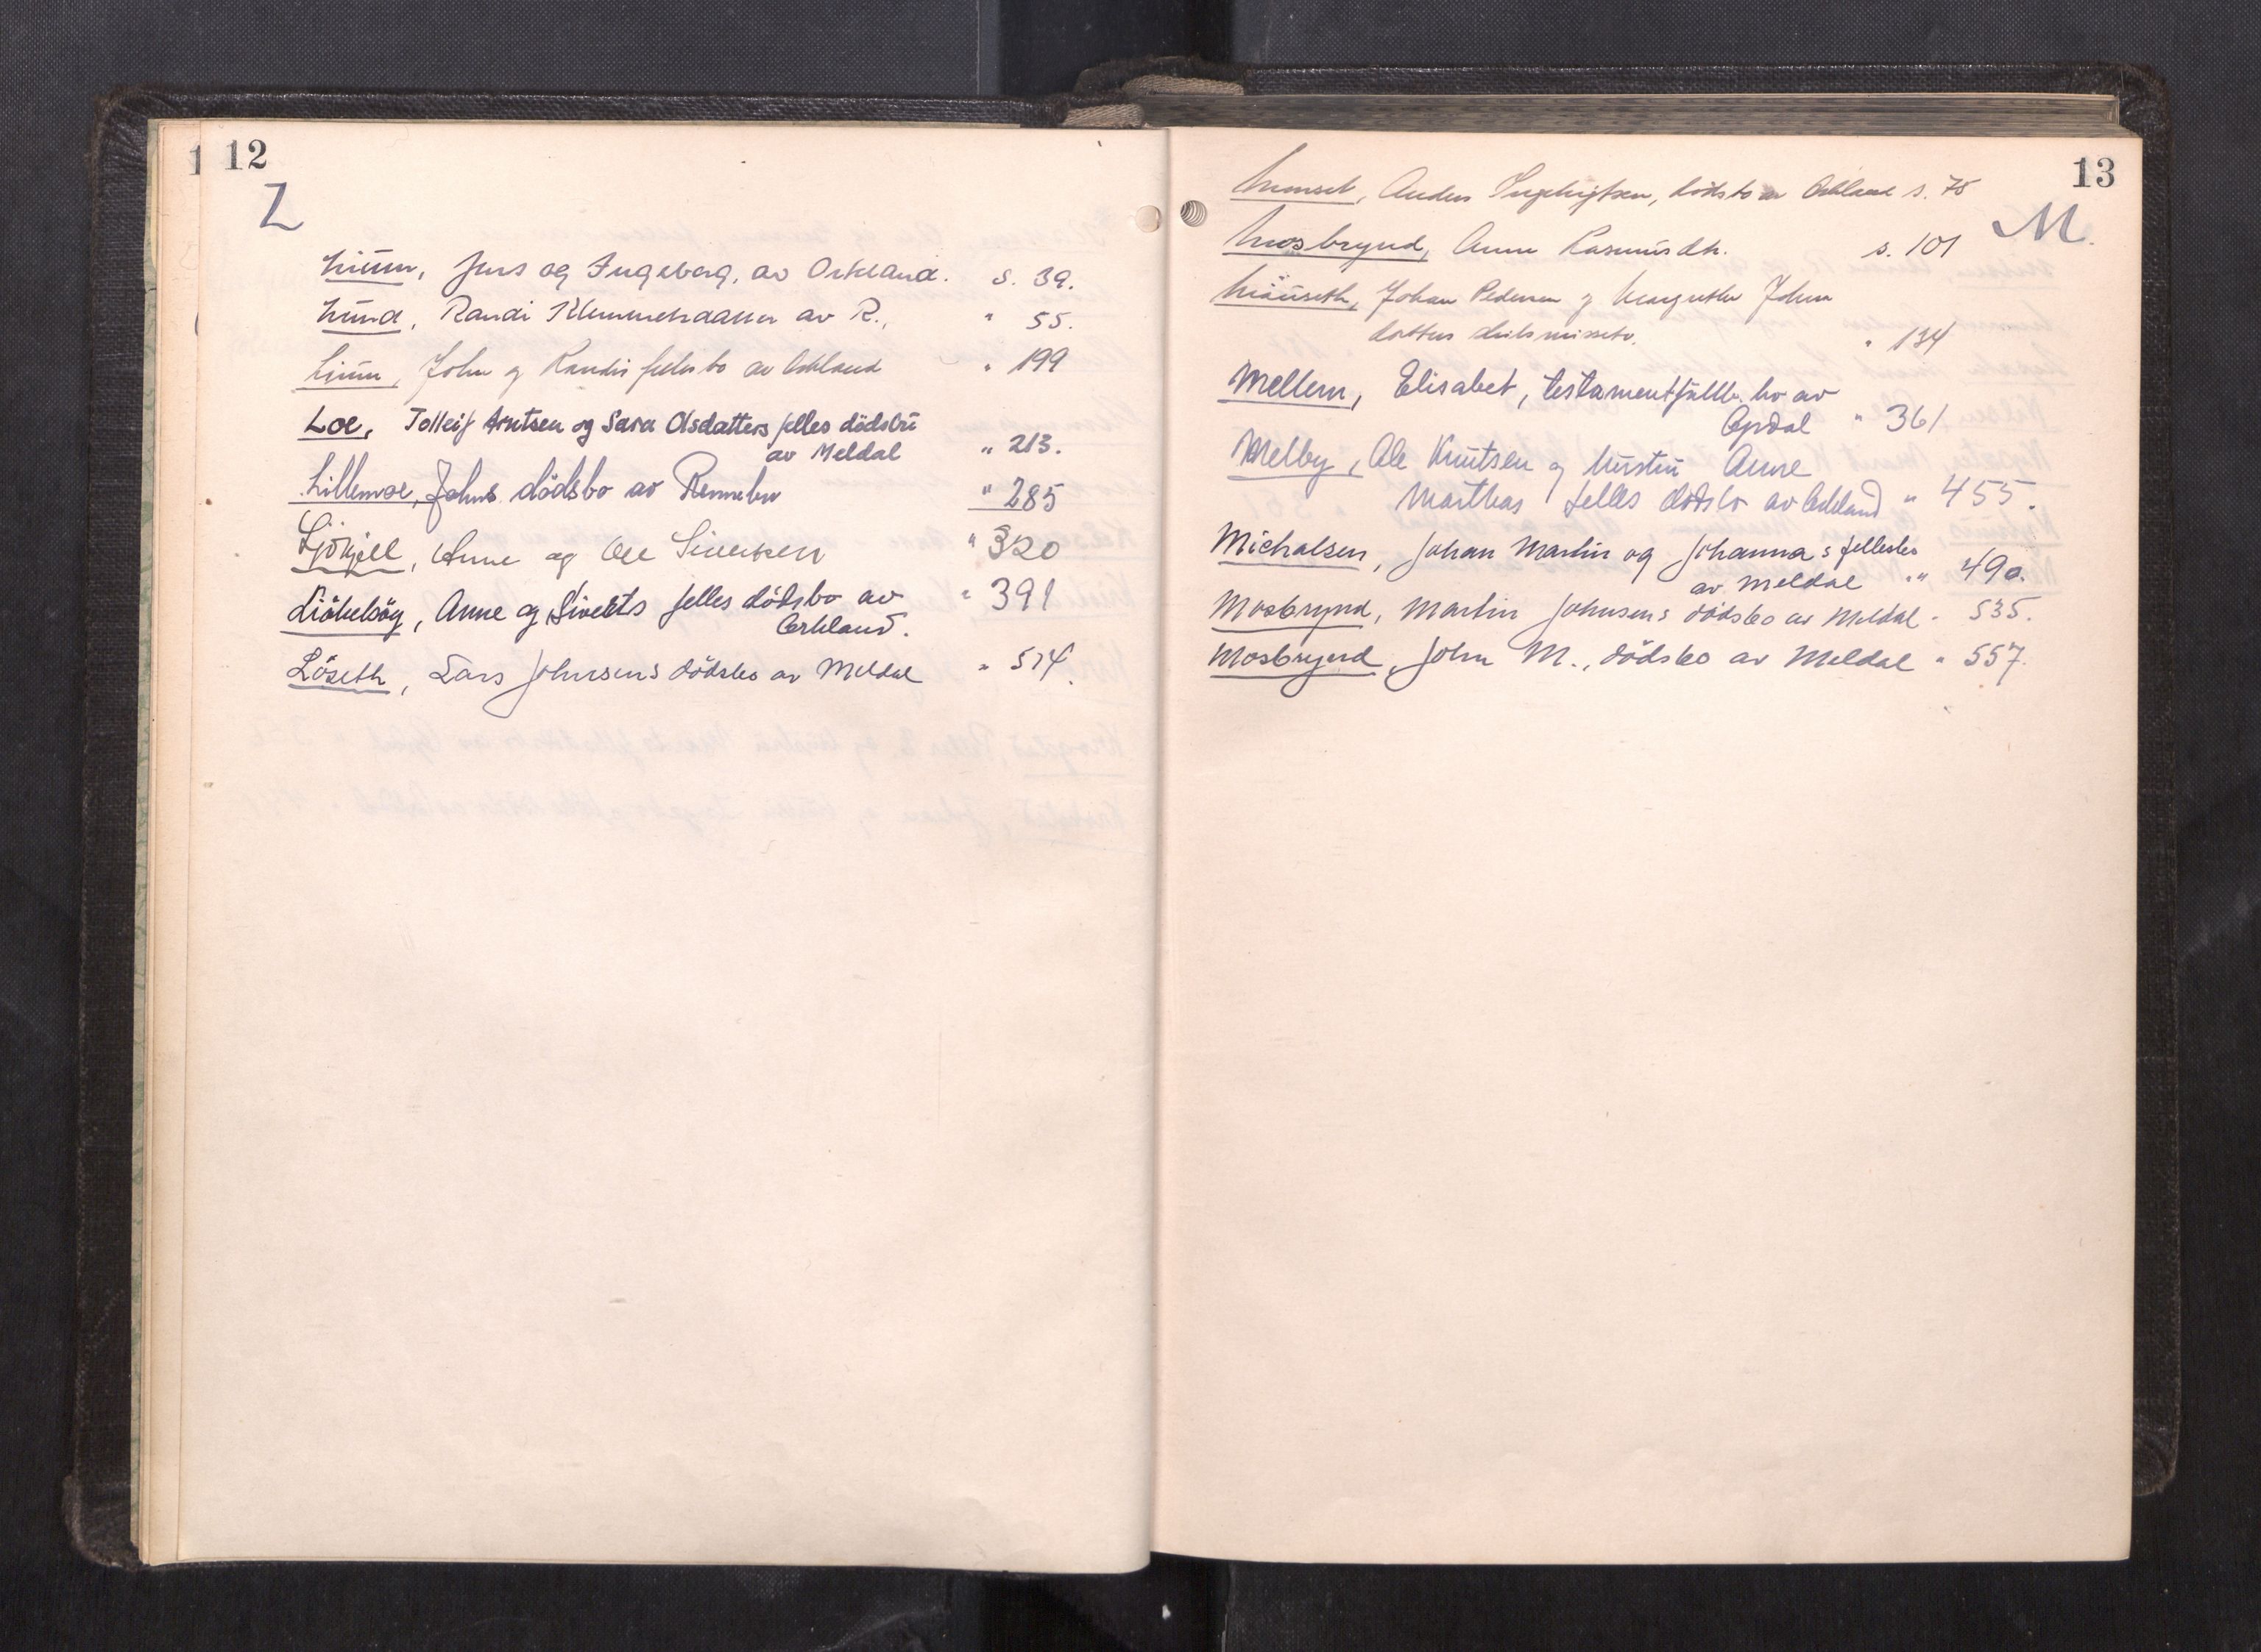 1 12
L
Lium, Jens og Ingeborg, av Orkland. s. 39.
Lund, Randi Klemmetsdatter av R., " 55.
Lium, John og Randis fellesbo av Orkland " 199
Loe, Tolleif Arntsen og Sara Olsdatters felles dödsbu
av Meldal " 213.
Lillemoe, Johns dödsbo av Rennebu " 285
Ljökjell, Anne og Ole Sivertsen " 320
Liökelsöy, Anne og Siverts felles dödsbo av " 391
Orkland.
Löseth, Lars Johnsens dödsbo av Meldal " 514.
13
M.
Anders Ingebrigtsen, dödsbo av Orkland s. 75
Mosbrynd, Anne Rasmusdtr. s. 101
Johan Pedersen og Margrethe John
dotters " 134
Mellem, Elisabet, testamentfullb. bo av
Opdal " 361
Melby, Ole Knutsen og hustru Anne
Marthas felles dödsbo av Orkland " 455.
Michalsen, Johan Martin og Johanna s fellesbo
av Meldal " 490.
Mosbrynd, Martin Johnsens dödsbo av Meldal - 535.
Mosbrynd, John M., dödsbo av Meldal " 557.